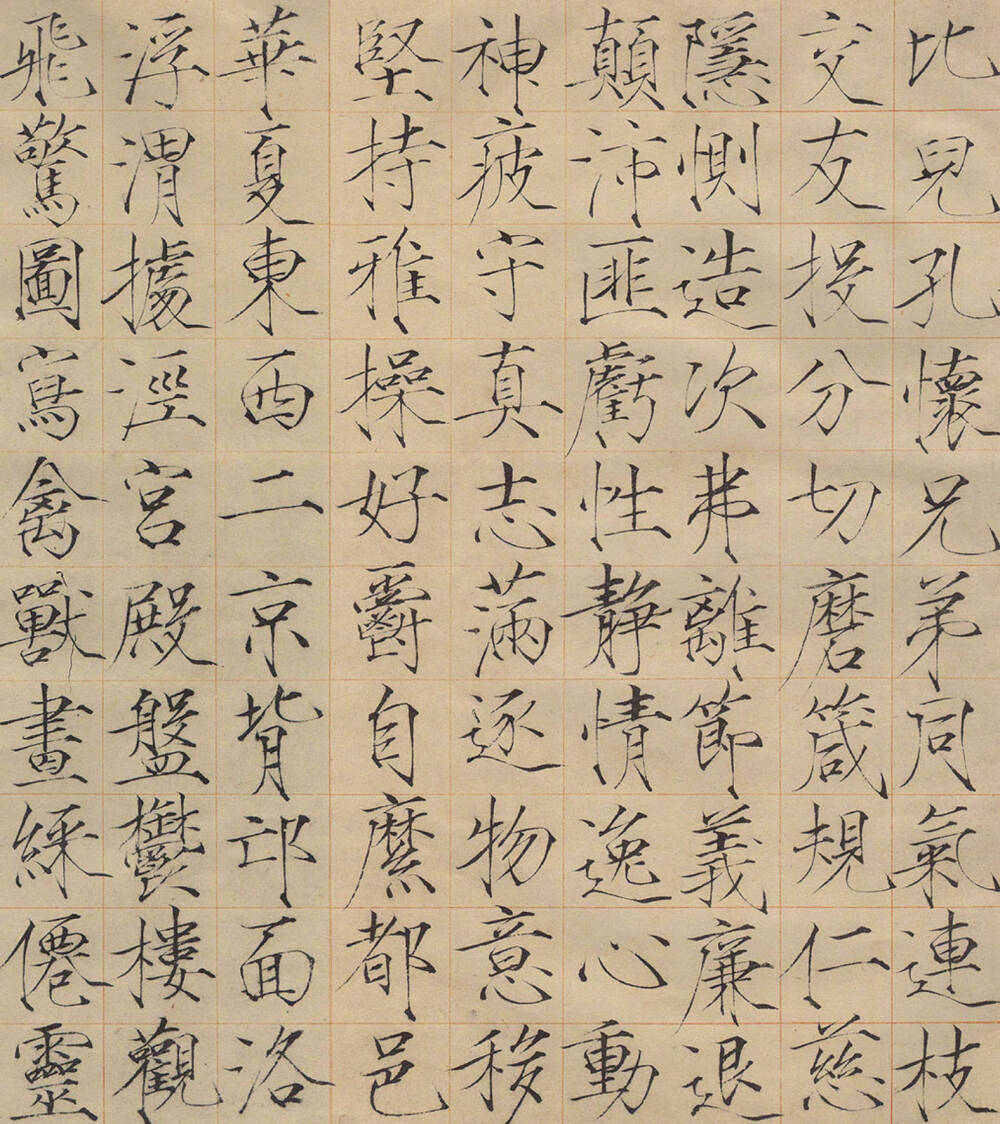 比兒孔懷兄弟同氣連枝
交友投分切磨箴規仁慈
隱惻造次弗離節義廉退
顛沛匪虧性靜情逸心動
神疲守真志滿逐物意移
堅持雅操好爵自縻都邑
華夏東西二京背邙面洛
浮渭據涇宮殿盤鬱樓觀
飛驚圖寫禽獸畫綵僊靈